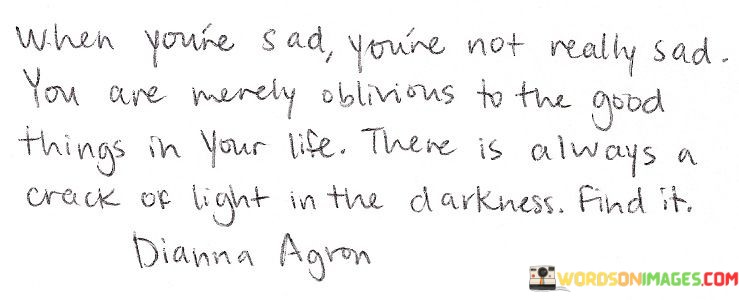 When you're sad, you're not really sad.
You are merely oblivious to the good
things in your life. There is always a
crack of light in the darkness. Find it.
Dianna Agron
WORDSONIMAGES.COM